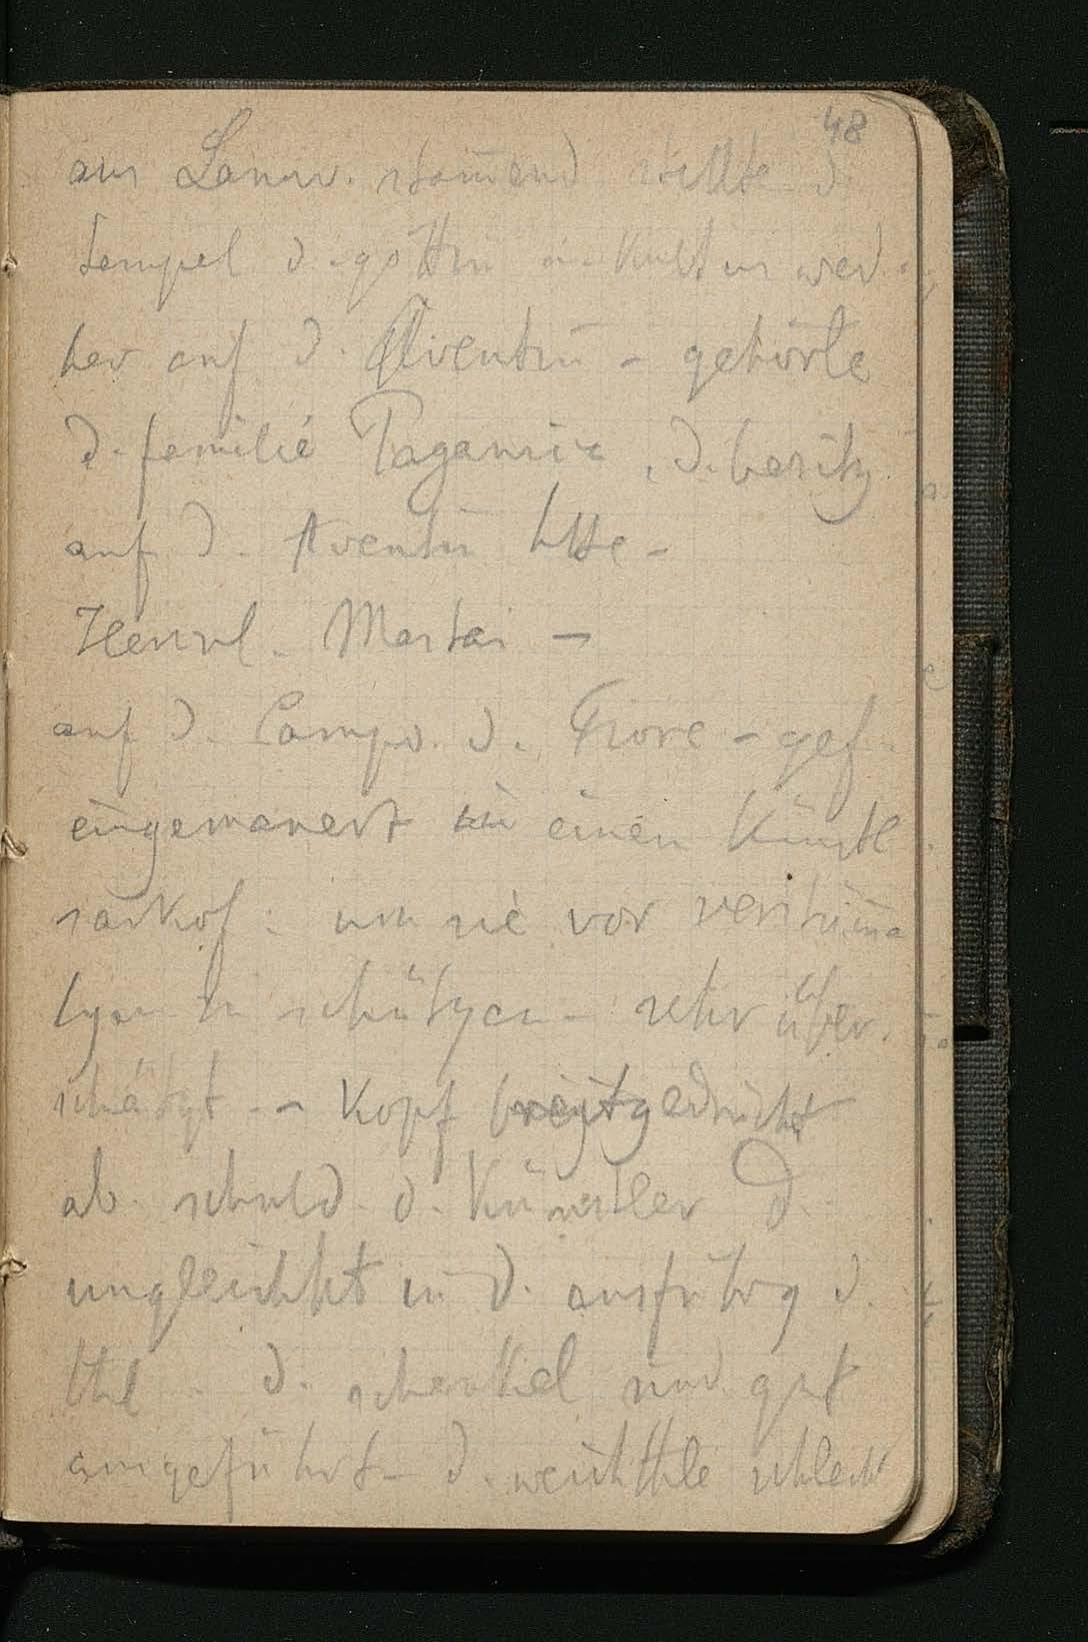 48
aus Lanuv. stam̄end stellte d.
tempel d. göttin kult us wied.
her auf d. Aventin – gehörte
d. familie Paganica, d. besitz
auf d. Aventin htte –
Hercul. Mastai –
auf d. Campo. d. Fiore – gef.
eingemauert in einen künstl.
sarkof: um sie vor verstüm̄e
lgen zu schützen – sehr über.
schätzt – Kopf breitgedrückt
als schuld d. Künstler d.
ungleichht in d. ausführg d.
thl . d. schenkel sind gut
ausgeführt – d. weichthle schlecht